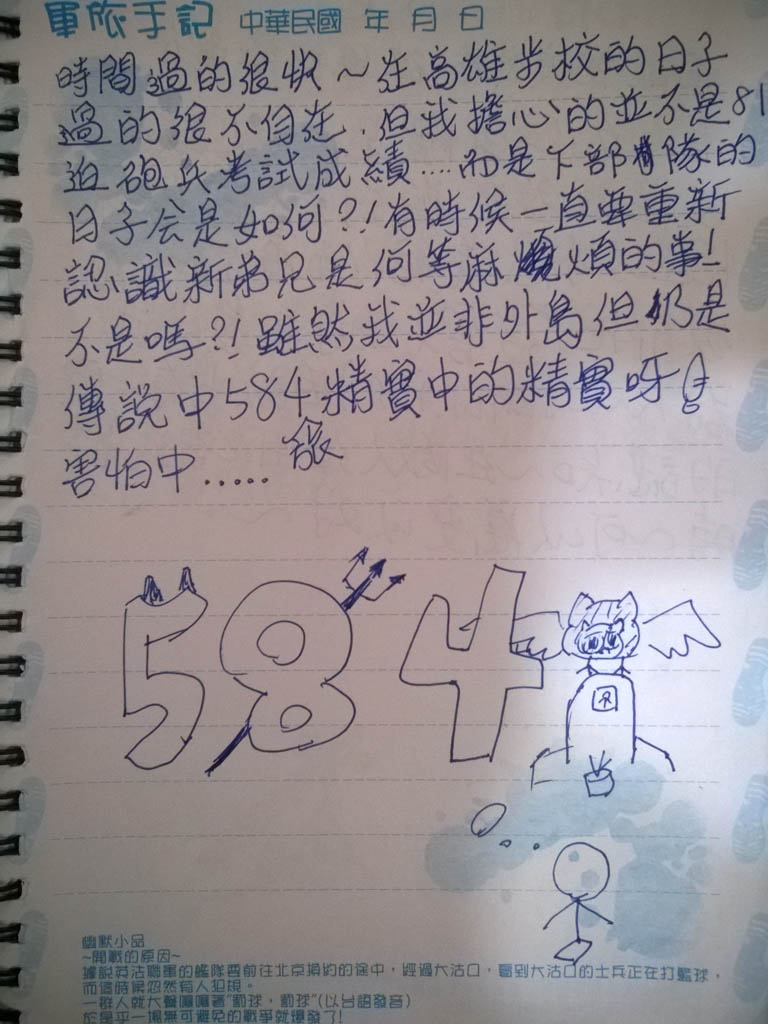 軍旅手記 中華民國 年 月 日
時間過的很快~在高雄步校的日子
過的很不自在.但我擔心的並不是81
迫砲兵考試成績....而是下部隊的
日子会是如何?!有時候一直要重新
認識新弟兄是何等麻煩的事!
不是嗎?!雖然我並非外島但仍是
傳說中584精實中的精實呀!
害怕中.....
584
幽默小品
~開戰的原因~
據說英法聯軍的艦隊要前往北京換約的途中,經過大沽口,看到大沽口的士兵正在打籃球,
而這時候忽然有人犯規。
一群人就大聲嚷嚷著"罰球,罰球"(以台語發音)
於是乎一場無可避免的戰爭就爆發了!